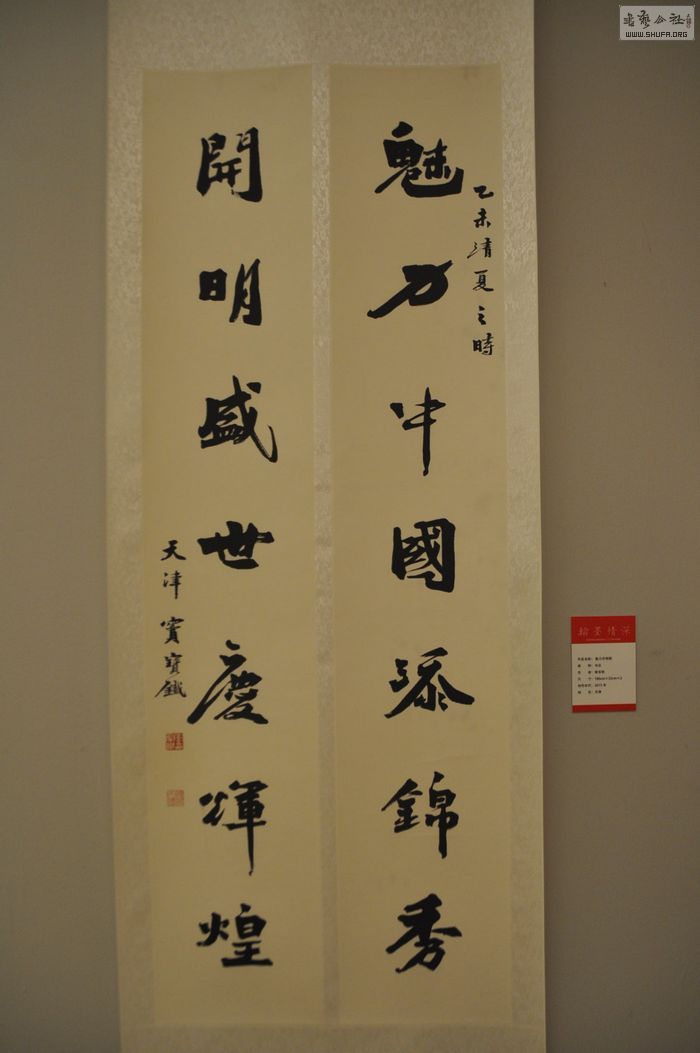 魅力中國添錦秀
乙未清夏之時
開明盛世慶輝煌
天津竇寶鐵
翰墨情深
WWW.SHUFA.ORG